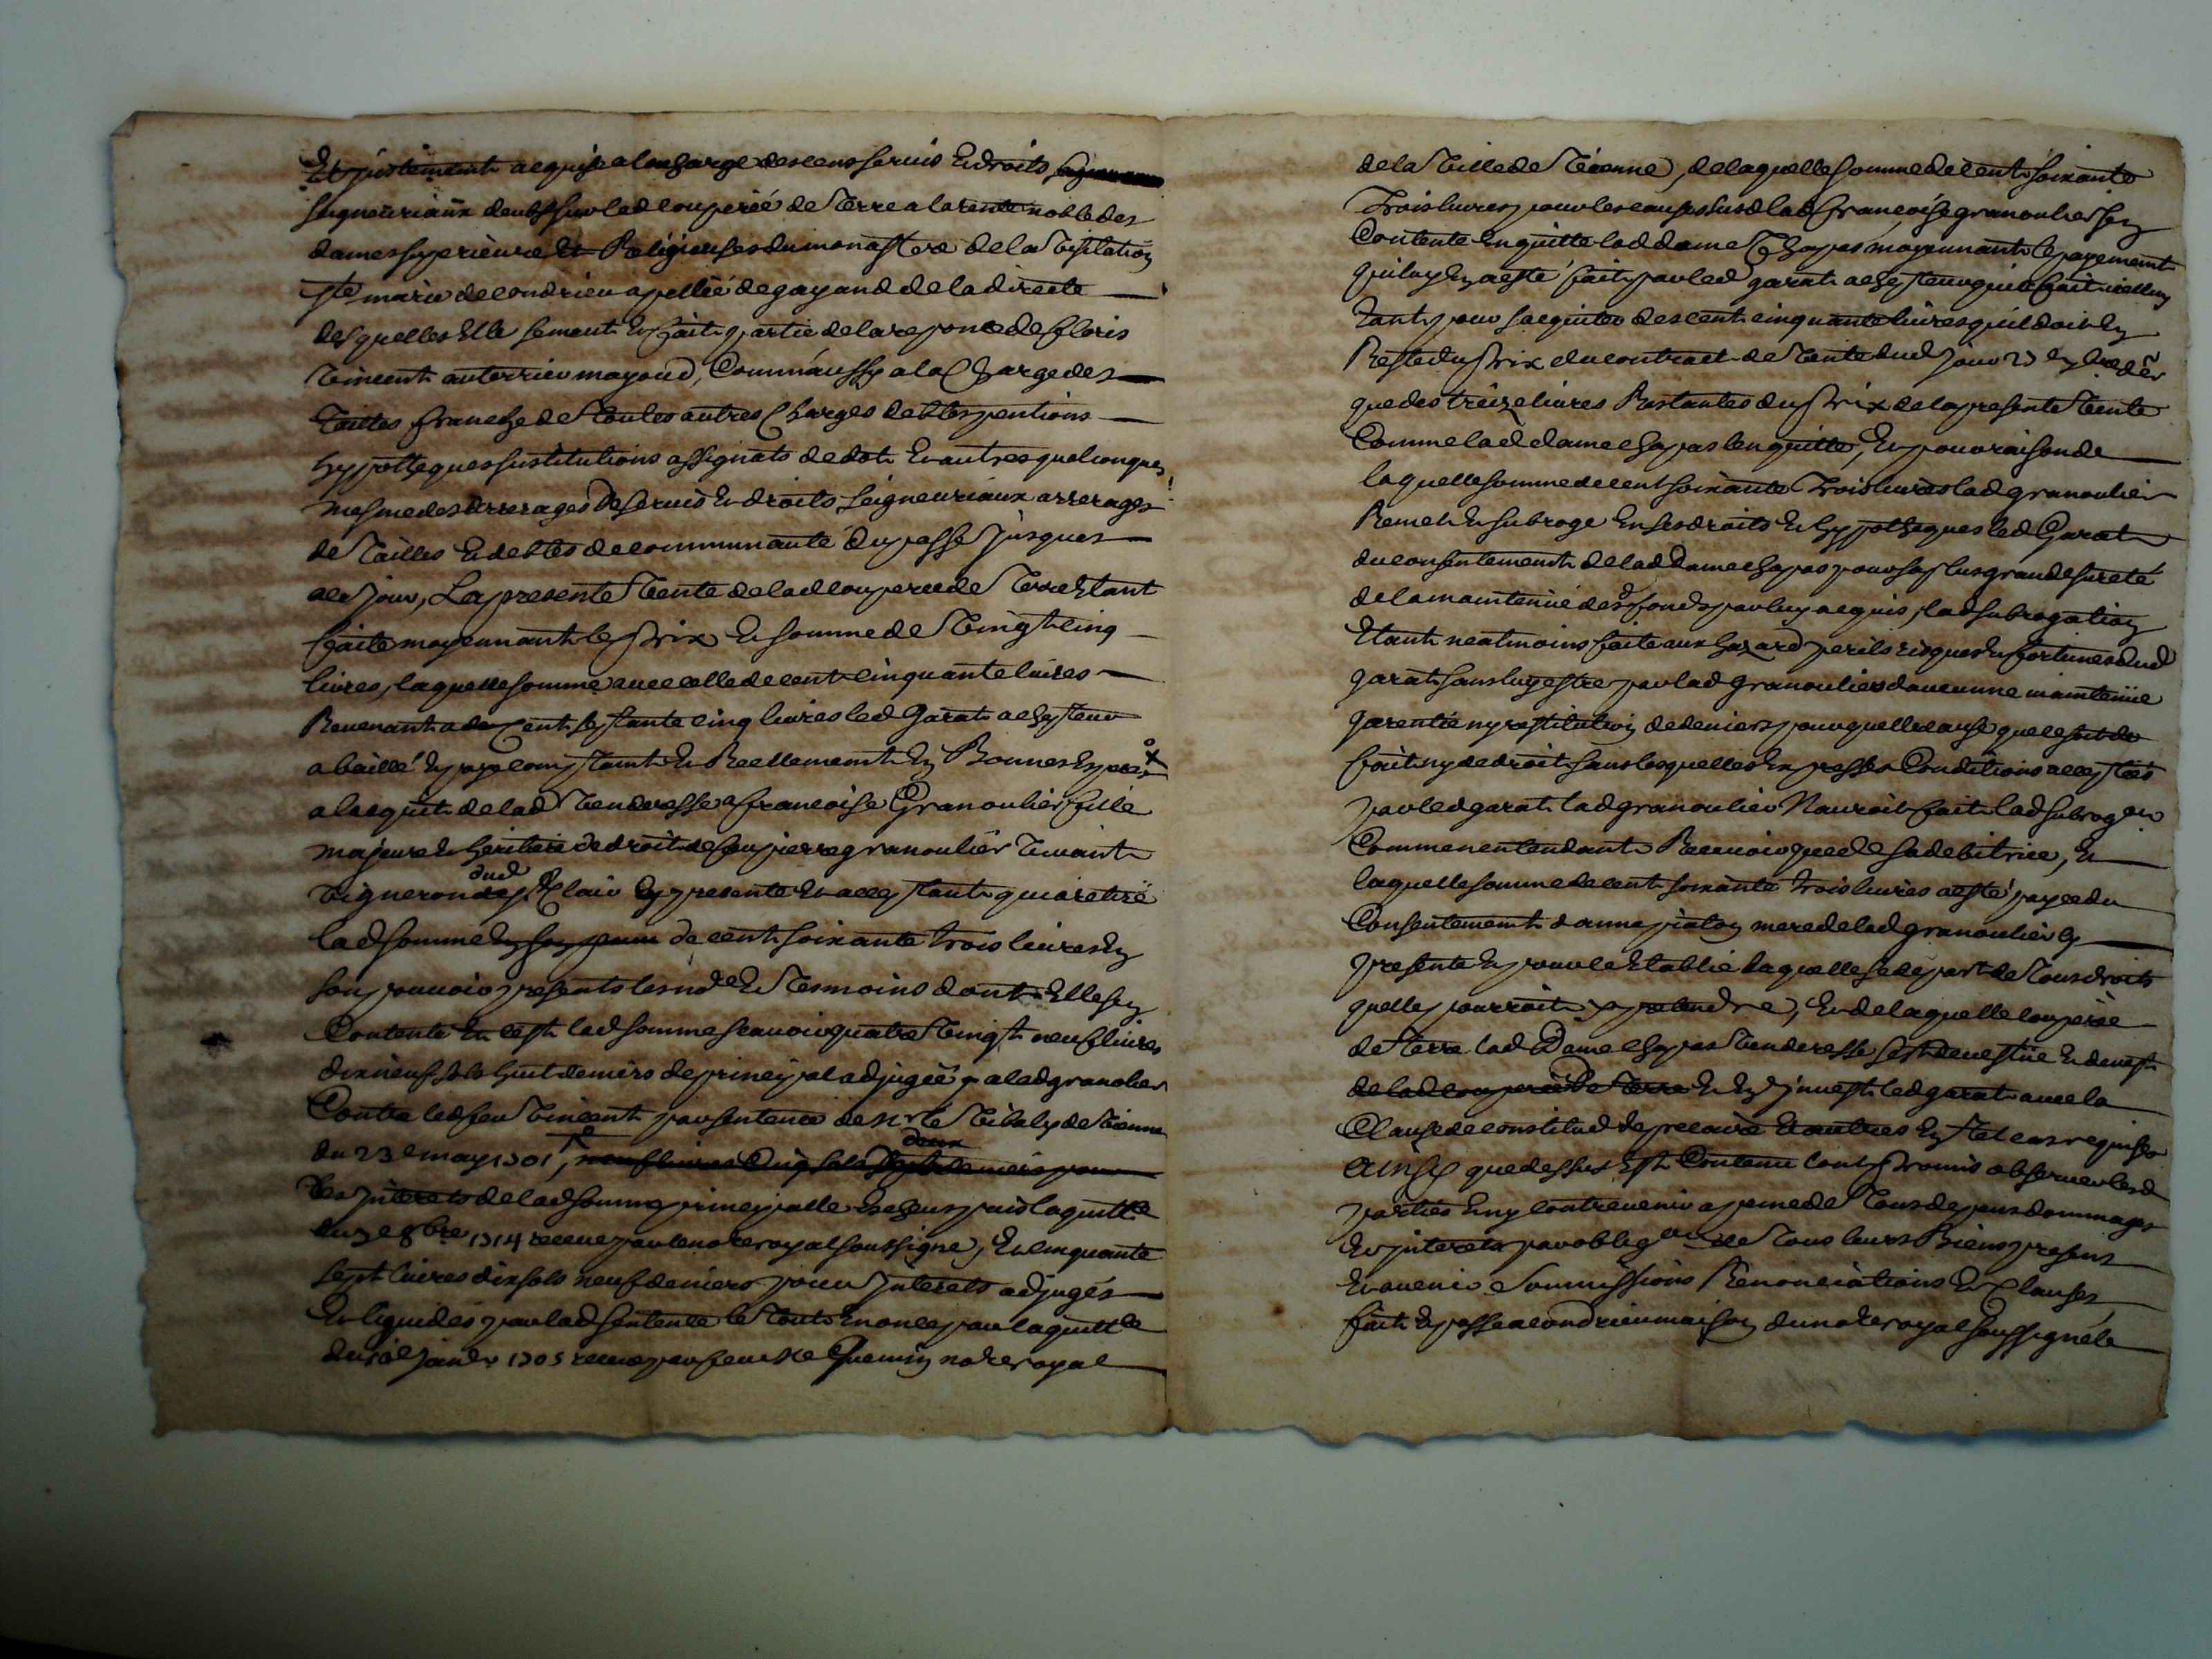 Et justement acquise a la charge des cens servis et droits
seigneuriaux deubs sur lad couperée de terre a la rente noble des
dames superieure et Religieuses du monastere de la visitation
ste marie de condrieu apellée de gayand de la directe
desquelles Elle se meut et fait partie de la reponce de floris
vincent auterrieu mayoud, Comme aussy a la Charge des
Tailles franche de toutes autres Charges debtes pentions
hypotheques sustitutions assignats de dot et autres quelconques
mesme des arrerages de servis et droits seigneuriaux arrerages
de tailles et debtes de communauté du passé jusques
a ce jour, La presente vente de lad couperée de terre Etant
faite moyennant le prix et somme de vingt cinq
livres, laquelle somme avec celle de cent cinquante livres
Revenant a cent septante cinq livres led Garat achepteur
a baillé et payé comptant et Reellement en Bonnes Especes
a lacquit de lad venderesse a francoise Granoulier fille
majeure et heritiere de droit de feu pierre granoulier vivant
vigneron dud st Clair Ey presente et acceptante qui a retiré
lad somme de cent soixante trois livres En
son pouvoir presents les nore et tesmoins dont Elle se
Contente Et c'est lad somme scavoir quatre vingt neuf livres
dix neuf sols huit deniers de principal adjugée a lad granolier
Contre led feu vincent par sentence de Mr le Vibaly de vienne
du 23e may 1701,
les interets de lad somme principalle Escheus puis la quittce
du 3e 8bre 1714 receue par le nore royal soussigné, Et cinquante
sept livres dix sols neuf deniers pour interets adjugés
Et liquidés par lad sentence le tout Enoncé par la quittce
du janvr 1705 receue par feu Me Guemin nore royal
de la ville de vienne, de laquelle somme de cent soixante
trois livres pour les causes susd lad francoise granoulier se
Contente En quitte lad dame Chapas moyennant le payement
qui luy En a esté fait par led garat achepteur qui la fait icelluy
tant pour sacquiter des cent cinquante livres qu'il doit En
Reste du prix du contract de vente dud jour 23
que des treize livres Restantes du prix de la presente vente
Comme lad dame chapas len quitte, Et pour raison de
laquelle somme de cent soixante trois livres lad granoulier
Remet Et subroge En ses droits et hypotheques led Garat
du consentement de lad dame chapas pour sa plus grande sureté
de la maintenüe desd fonds par luy acquis, lad subrogation
Etant neatmoins faite aux hazard perils risques Et fortunes dud
garat sans luy estre par lad granoulier d'aucunne maintenüe
garentie ny restitution de deniers pour quelle cause que ce soit de
fait ny de droit sans lesquelles Expresses Conditions acceptées
par led garat lad granoulier N'auroit fait lad subrogaon
Comme nentendant Recevoir que de sa debitrice, Et
laquelle somme de cent soixante trois livres a esté payée du
Consentement danne piaton mere de lad granoulier Ey
presente Et pour ce Etablie laquelle se depart de tous droits
quelle pourroit y pretendre, Et de laquelle couperée
de terre lad Dame chapas venderesse s'est devestüe et devest
de lad couperée de terre Et En investi led garat avec la
Clause de constitud de precaire Et autres En tel cas requises
Ainsy que dessus Est Contenu l'ont promis observer lesd
parties Et ny contrevenir a peine de tous depens dommages
Et interets par obligaon de tous leurs Biens presens
Et avenir soumissions Renonciations Et Clauses
fait Et passé a condrieu maison du nore royal soussigné le